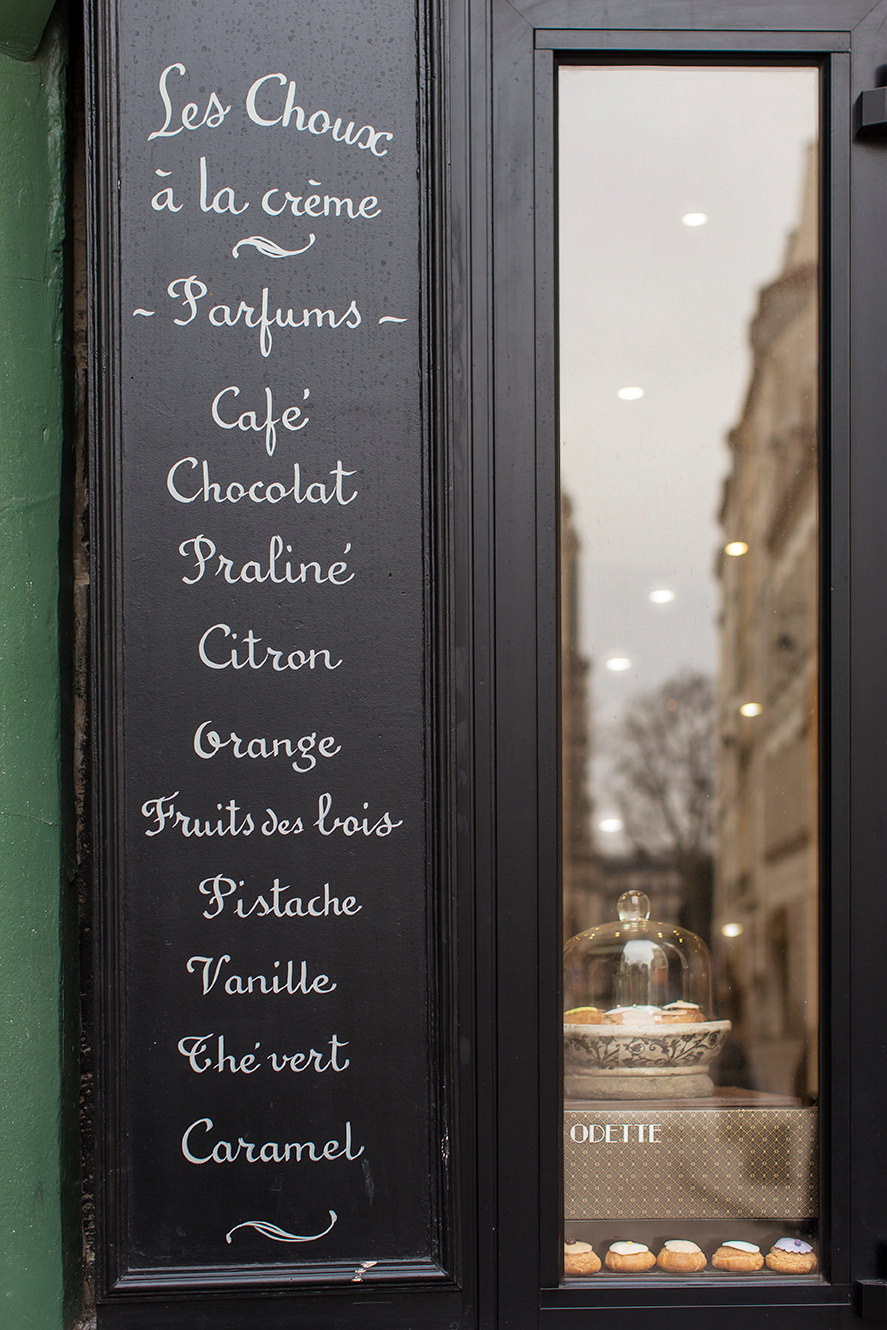 Les Choux
à la crème
~ Parfums ~
Café
Chocolat
Praliné
Citron
Orange
Fruits des bois
Pistache
Vanille
Thé vert
Caramel
ODETTE